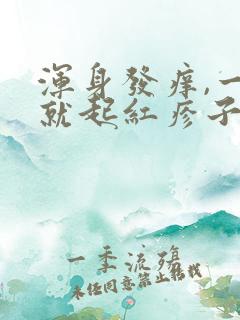 渾身發痒,一
就起紅疹子
一季流殤
未任同意禁止转载